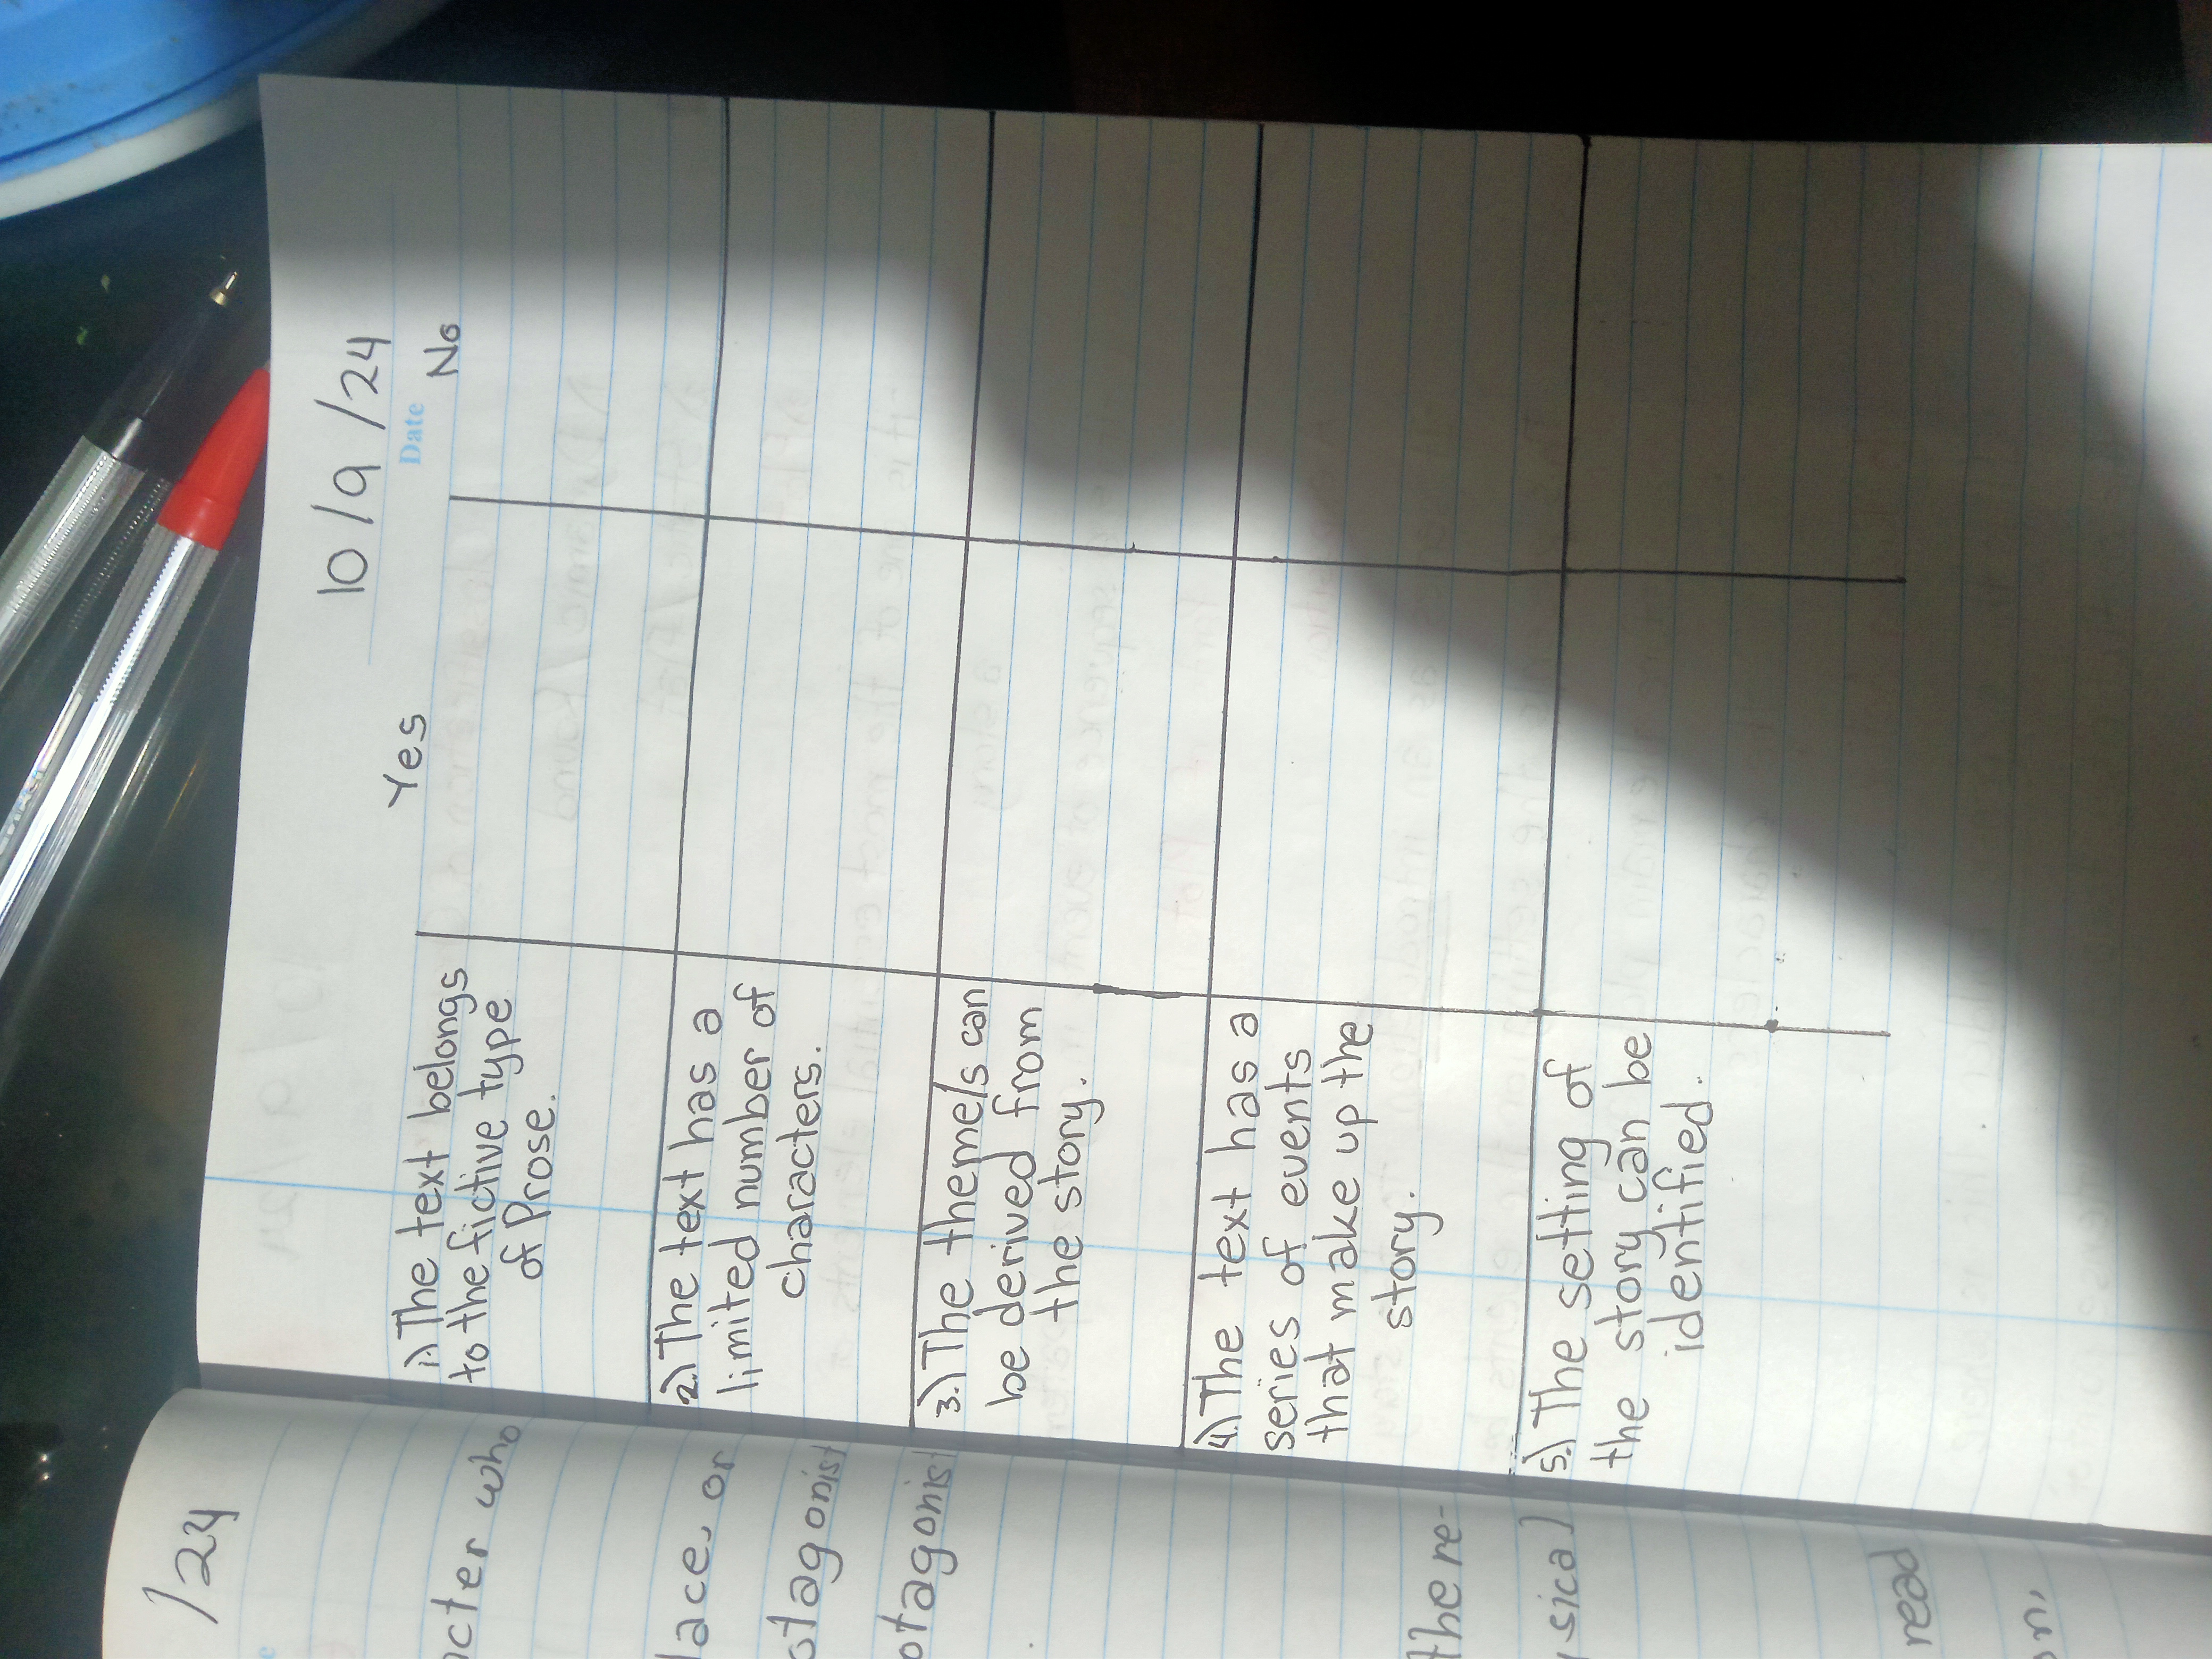 /24
acter who
lace, or
otagonist
otagonist
the re-
ysical
read
on,
10/9/24
Date
Yes
No
1.) The text belongs
to the fictive type
of Prose.
2.) The text has a
limited number of
characters.
3.) The theme/s can
be derived from
the story.
4.) The text has a
series of events
that make up the
story.
5.) The setting of
the story can be
identified.